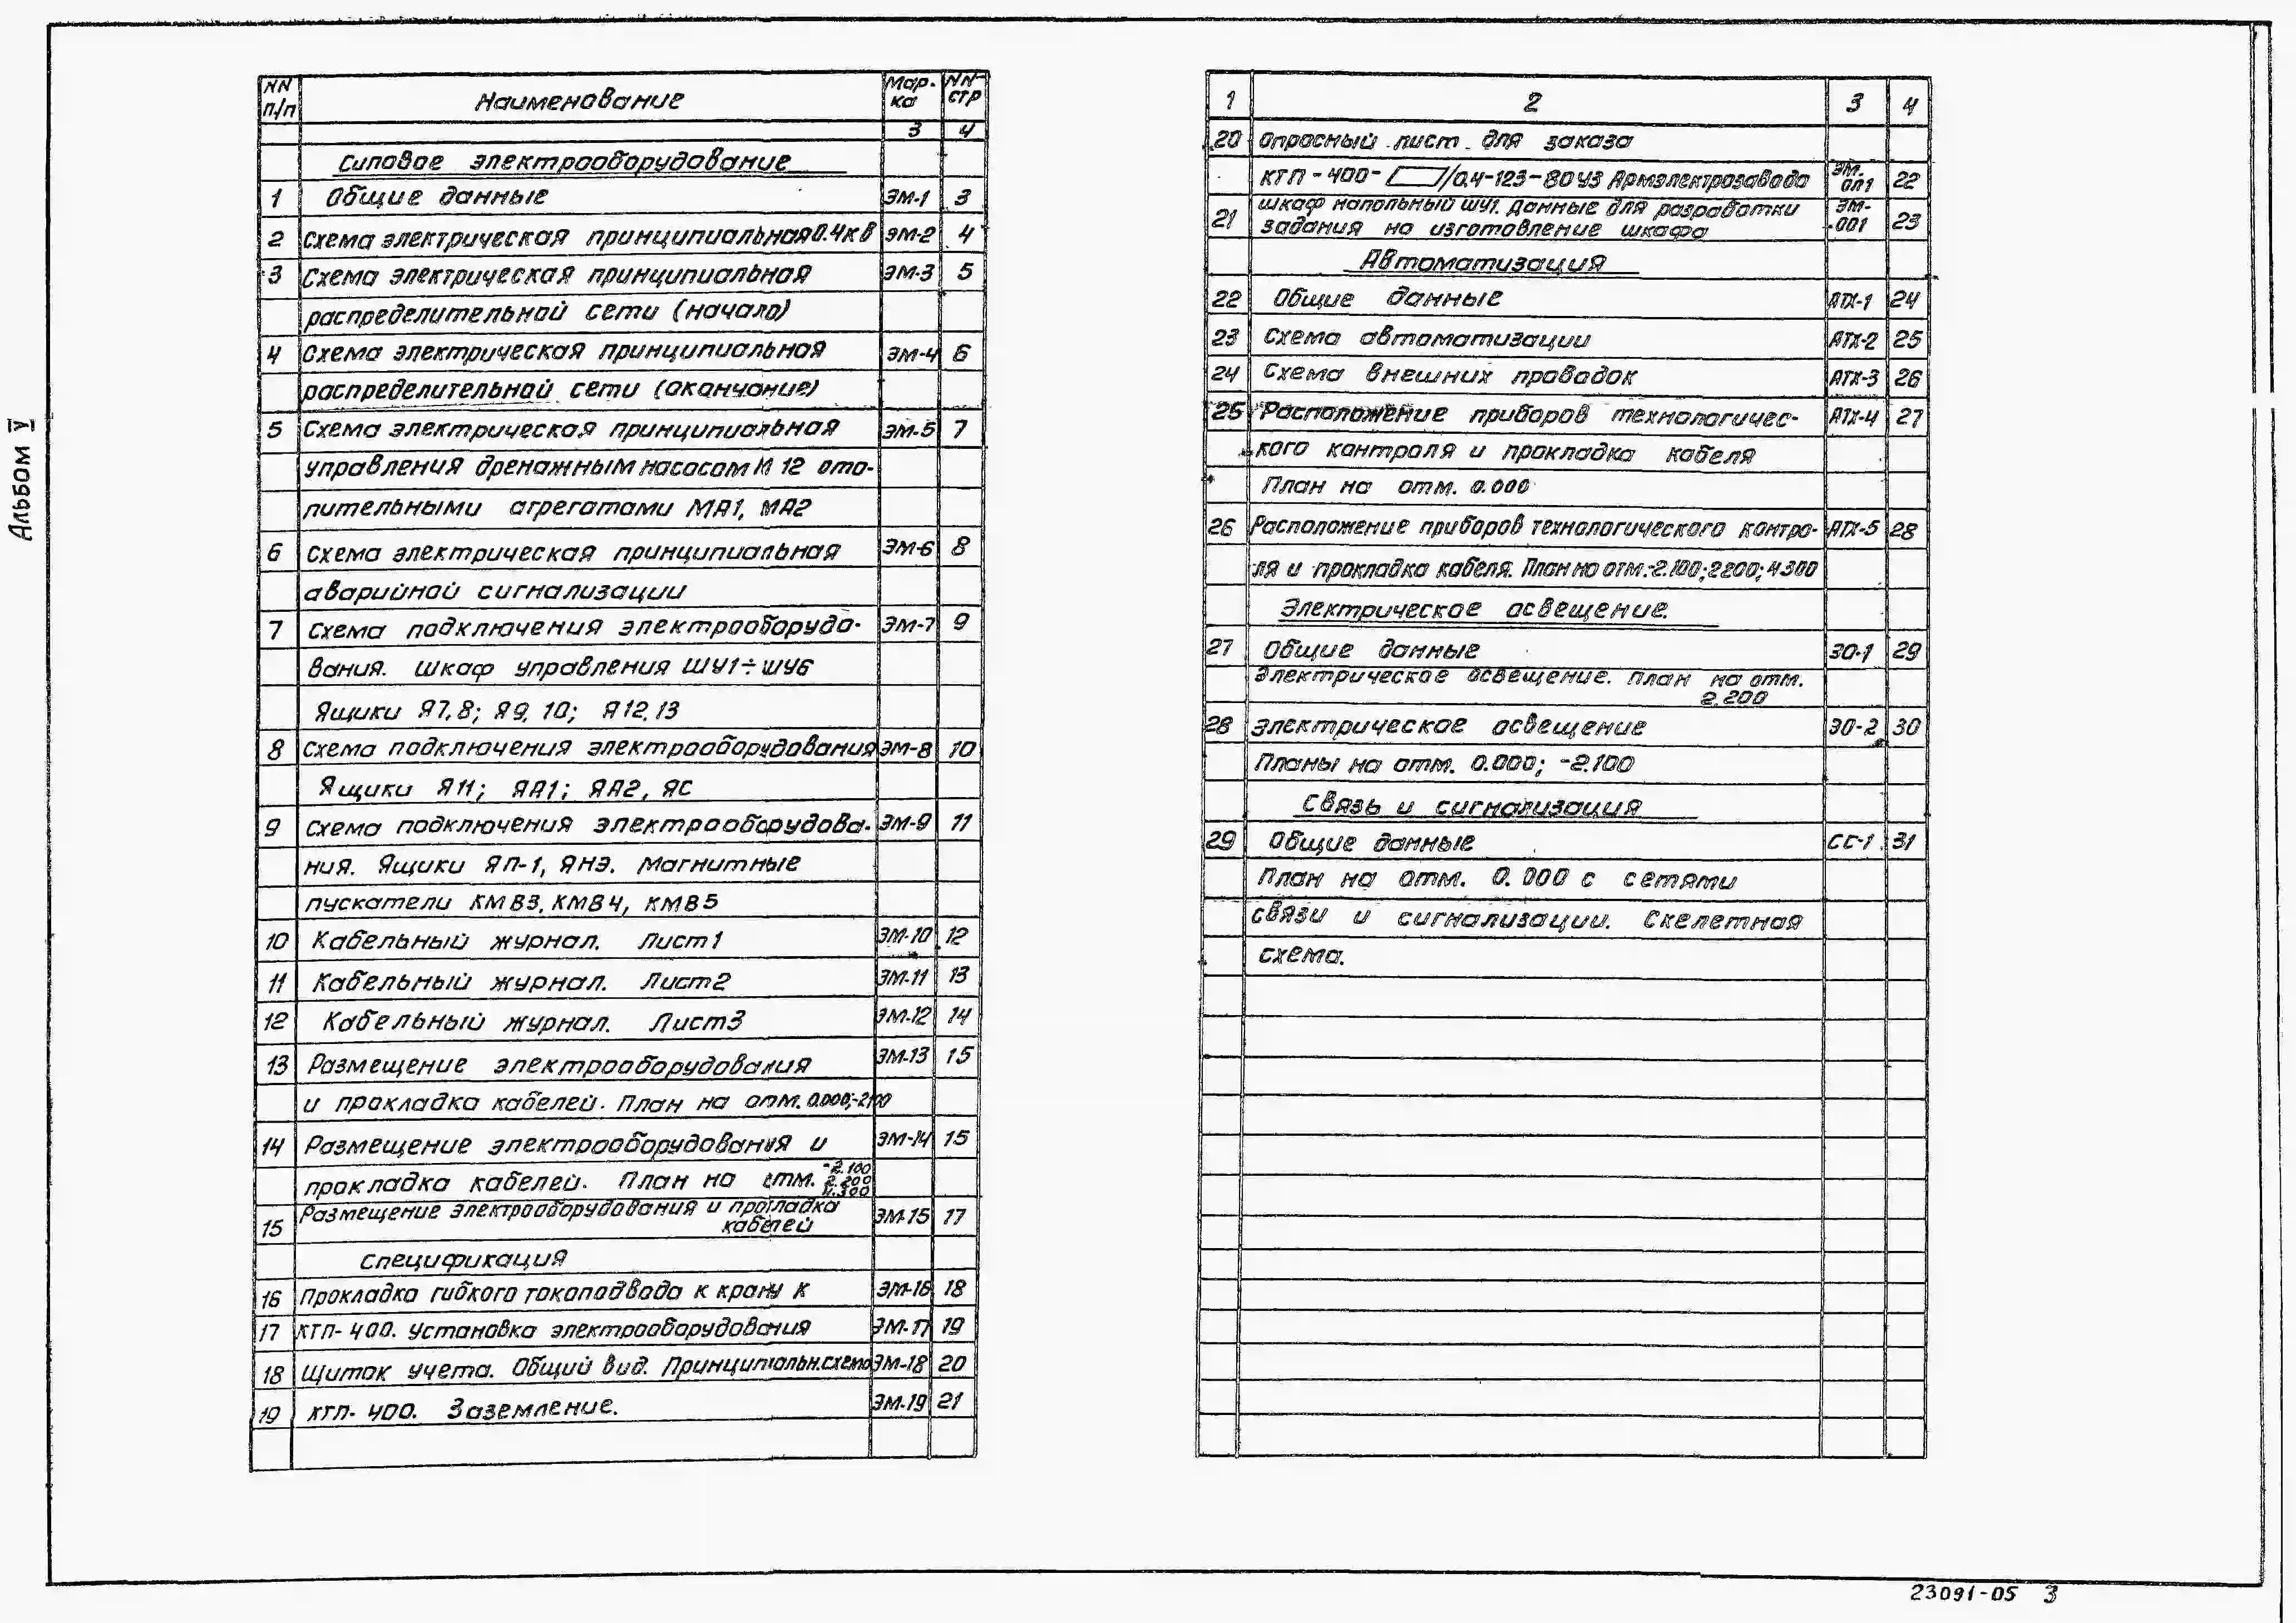 Альбом V
NN п/п Наименование Мар-ка NN стр
3 4
Силовое электрооборудование
1 Общие данные ЭМ-1 3
2 Схема электрическая принципиальная 0.4кВ ЭМ-2 4
3 Схема электрическая принципиальная ЭМ-3 5
распределительной сети (начало)
4 Схема электрическая принципиальная ЭМ-4 6
распределительной сети (окончание)
5 Схема электрическая принципиальная ЭМ-5 7
управления дренажным насосом М 12 ото-
пительными агрегатами МА1, МА2
6 Схема электрическая принципиальная ЭМ-6 8
аварийной сигнализации
7 Схема подключения электрооборудо- ЭМ-7 9
вания. Шкаф управления ШУ1÷ШУ6
Ящики Я7,8; Я9, 10; Я12,13
8 Схема подключения электрооборудования ЭМ-8 10
Ящики Я11; ЯА1; ЯА2, ЯС
9 Схема подключения электрооборудова- ЭМ-9 11
ния. Ящики ЯП-1, ЯНЭ. Магнитные
пускатели КМВ3, КМВ4, КМВ5
10 Кабельный журнал. Лист1 ЭМ-10 12
11 Кабельный журнал. Лист2 ЭМ-11 13
12 Кабельный журнал. Лист3 ЭМ-12 14
13 Размещение электрооборудования ЭМ-13 15
и прокладка кабелей. План на отм. 0.000;-2100
14 Размещение электрооборудования и ЭМ-14 15
прокладка кабелей. План на отм. -2.100 2.200 4.300
15 Размещение электрооборудования и прокладка кабелей ЭМ-15 17
спецификация
16 Прокладка гибкого токоподвода к крану К ЭМ-16 18
17 КТП-400. Установка электрооборудования ЭМ-17 19
18 Щиток учета. Общий вид. Принципиальн.схема ЭМ-18 20
19 КТП-400. Заземление. ЭМ-19 21
1 2 3 4
20 Опросный лист для заказа
КТП-400-/0.4-123-80У3 Армэлектрозавода ЭМ. ОЛ1 22
21 Шкаф напольный ШУ1. Данные для разработки ЭМ- 23
задания на изготовление шкафа .001
Автоматизация
22 Общие данные АТХ-1 24
23 Схема автоматизации АТХ-2 25
24 Схема внешних проводок АТХ-3 26
25 Расположение приборов технологичес- АТХ-4 27
кого контроля и прокладка кабеля
План на отм. 0.000
26 Расположение приборов технологического контро- АТХ-5 28
ля и прокладка кабеля. План на отм.-2.100; 2200; 4300
Электрическое освещение.
27 Общие данные ЭО-1 29
Электрическое освещение. План на отм.
2.200
28 Электрическое освещение ЭО-2 30
Планы на отм. 0.000; -2.100
Связь и сигнализация
29 Общие данные СС-1 31
План на отм. 0.000 с сетями
связи и сигнализации. Скелетная
схема.
23091-05 3